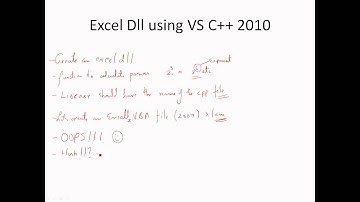 Excel Dll using VS C++ 2010
- Create an excel dll
- function to calculate power 2³ = 2
exponent
- Listener should have the name of the cpp file
- Lets create an Excel VBA file (2007) xlsm
- OOPS!!!
- Huh!!?